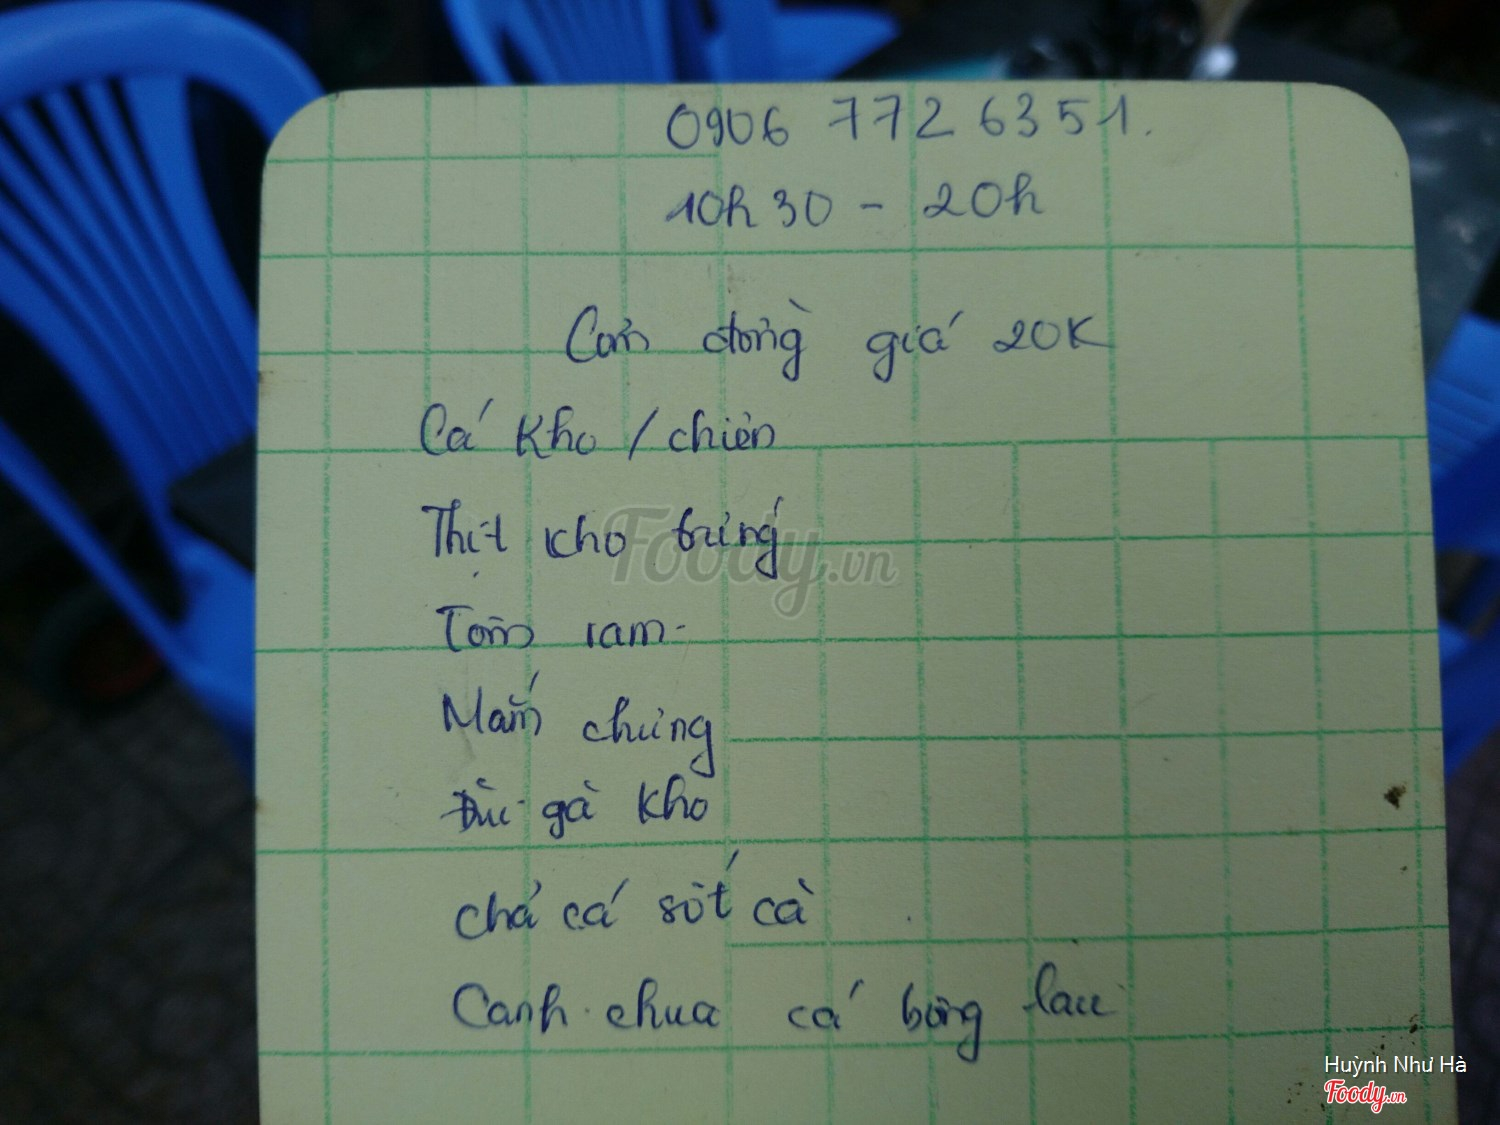 0906 772 6351.
10h30 - 20h
Cơm đồng giá 20K
Cá Kho / chiên
Thịt kho trứng
Tôm ram
Mắm chưng
Đùi gà kho
Chả cá sốt cà
Canh chua cá bông lau
Foody.vn
Huỳnh Như Hà
Foody.vn